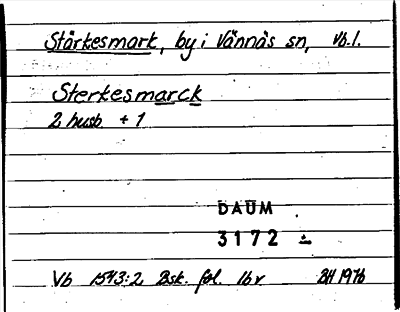 Stärkesmark, by i Vännäs sn, Vb. l.
Sterkesmarck
2 husb. + 1
DAUM
3172
Vb 1543:2 Bsk. fol. 16 v BH 1976